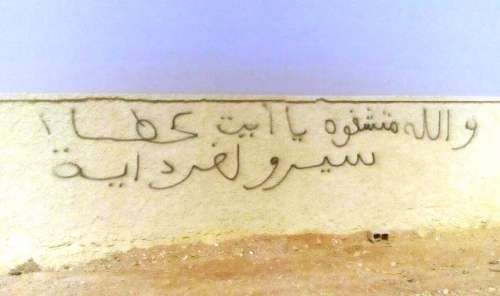 والله متشفوه يا أبيت عطا!
سيرو لغرداية